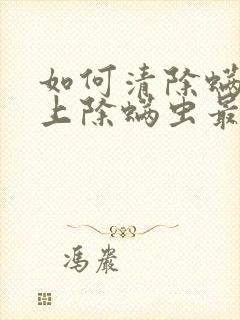 如何清除螨
上除螨虫最
冯岩